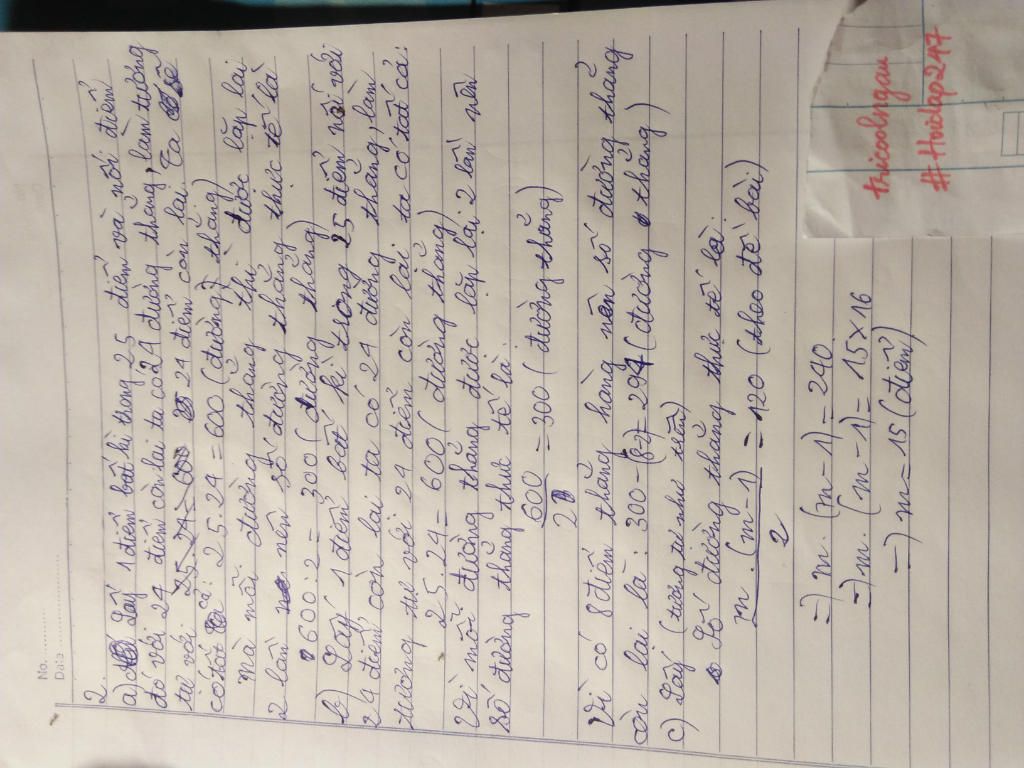 No.
Date
2.
a) Lấy 1 điểm bất kì trong 25 điểm và nối điểm
đó với 24 điểm còn lại ta có 24 đường thẳng, làm tương
tự với 24 điểm còn lại. Ta
có tất cả: 25.24 = 600 (đường thẳng)
mà mỗi đường thẳng thì được lặp lại
2 lần nên số đường thẳng thực tế là
600:2 = 300 (đường thẳng)
b) Lấy 1 điểm bất kì trong 25 điểm nối với
24 điểm còn lại ta có 24 đường thẳng, làm
tương tự với 24 điểm còn lại ta có tất cả:
25.24 = 600 (đường thẳng)
Vì mỗi đường thẳng được lặp lại 2 lần nên
số đường thẳng thực tế là:
600/2 = 300 (đường thẳng)
Vì có 8 điểm thẳng hàng nên số đường thẳng
còn lại là: 300 - (8-2) = 294 (đường thẳng)
c) Lấy (tương tự như trên)
Số đường thẳng thực tế là:
m.(m-1)/2 = 120 (theo đề bài)
=) m.(m-1) = 240
=) m.(m-1) = 15×16
=) m = 15 (điểm)
tricoolngau
#Hoidap247